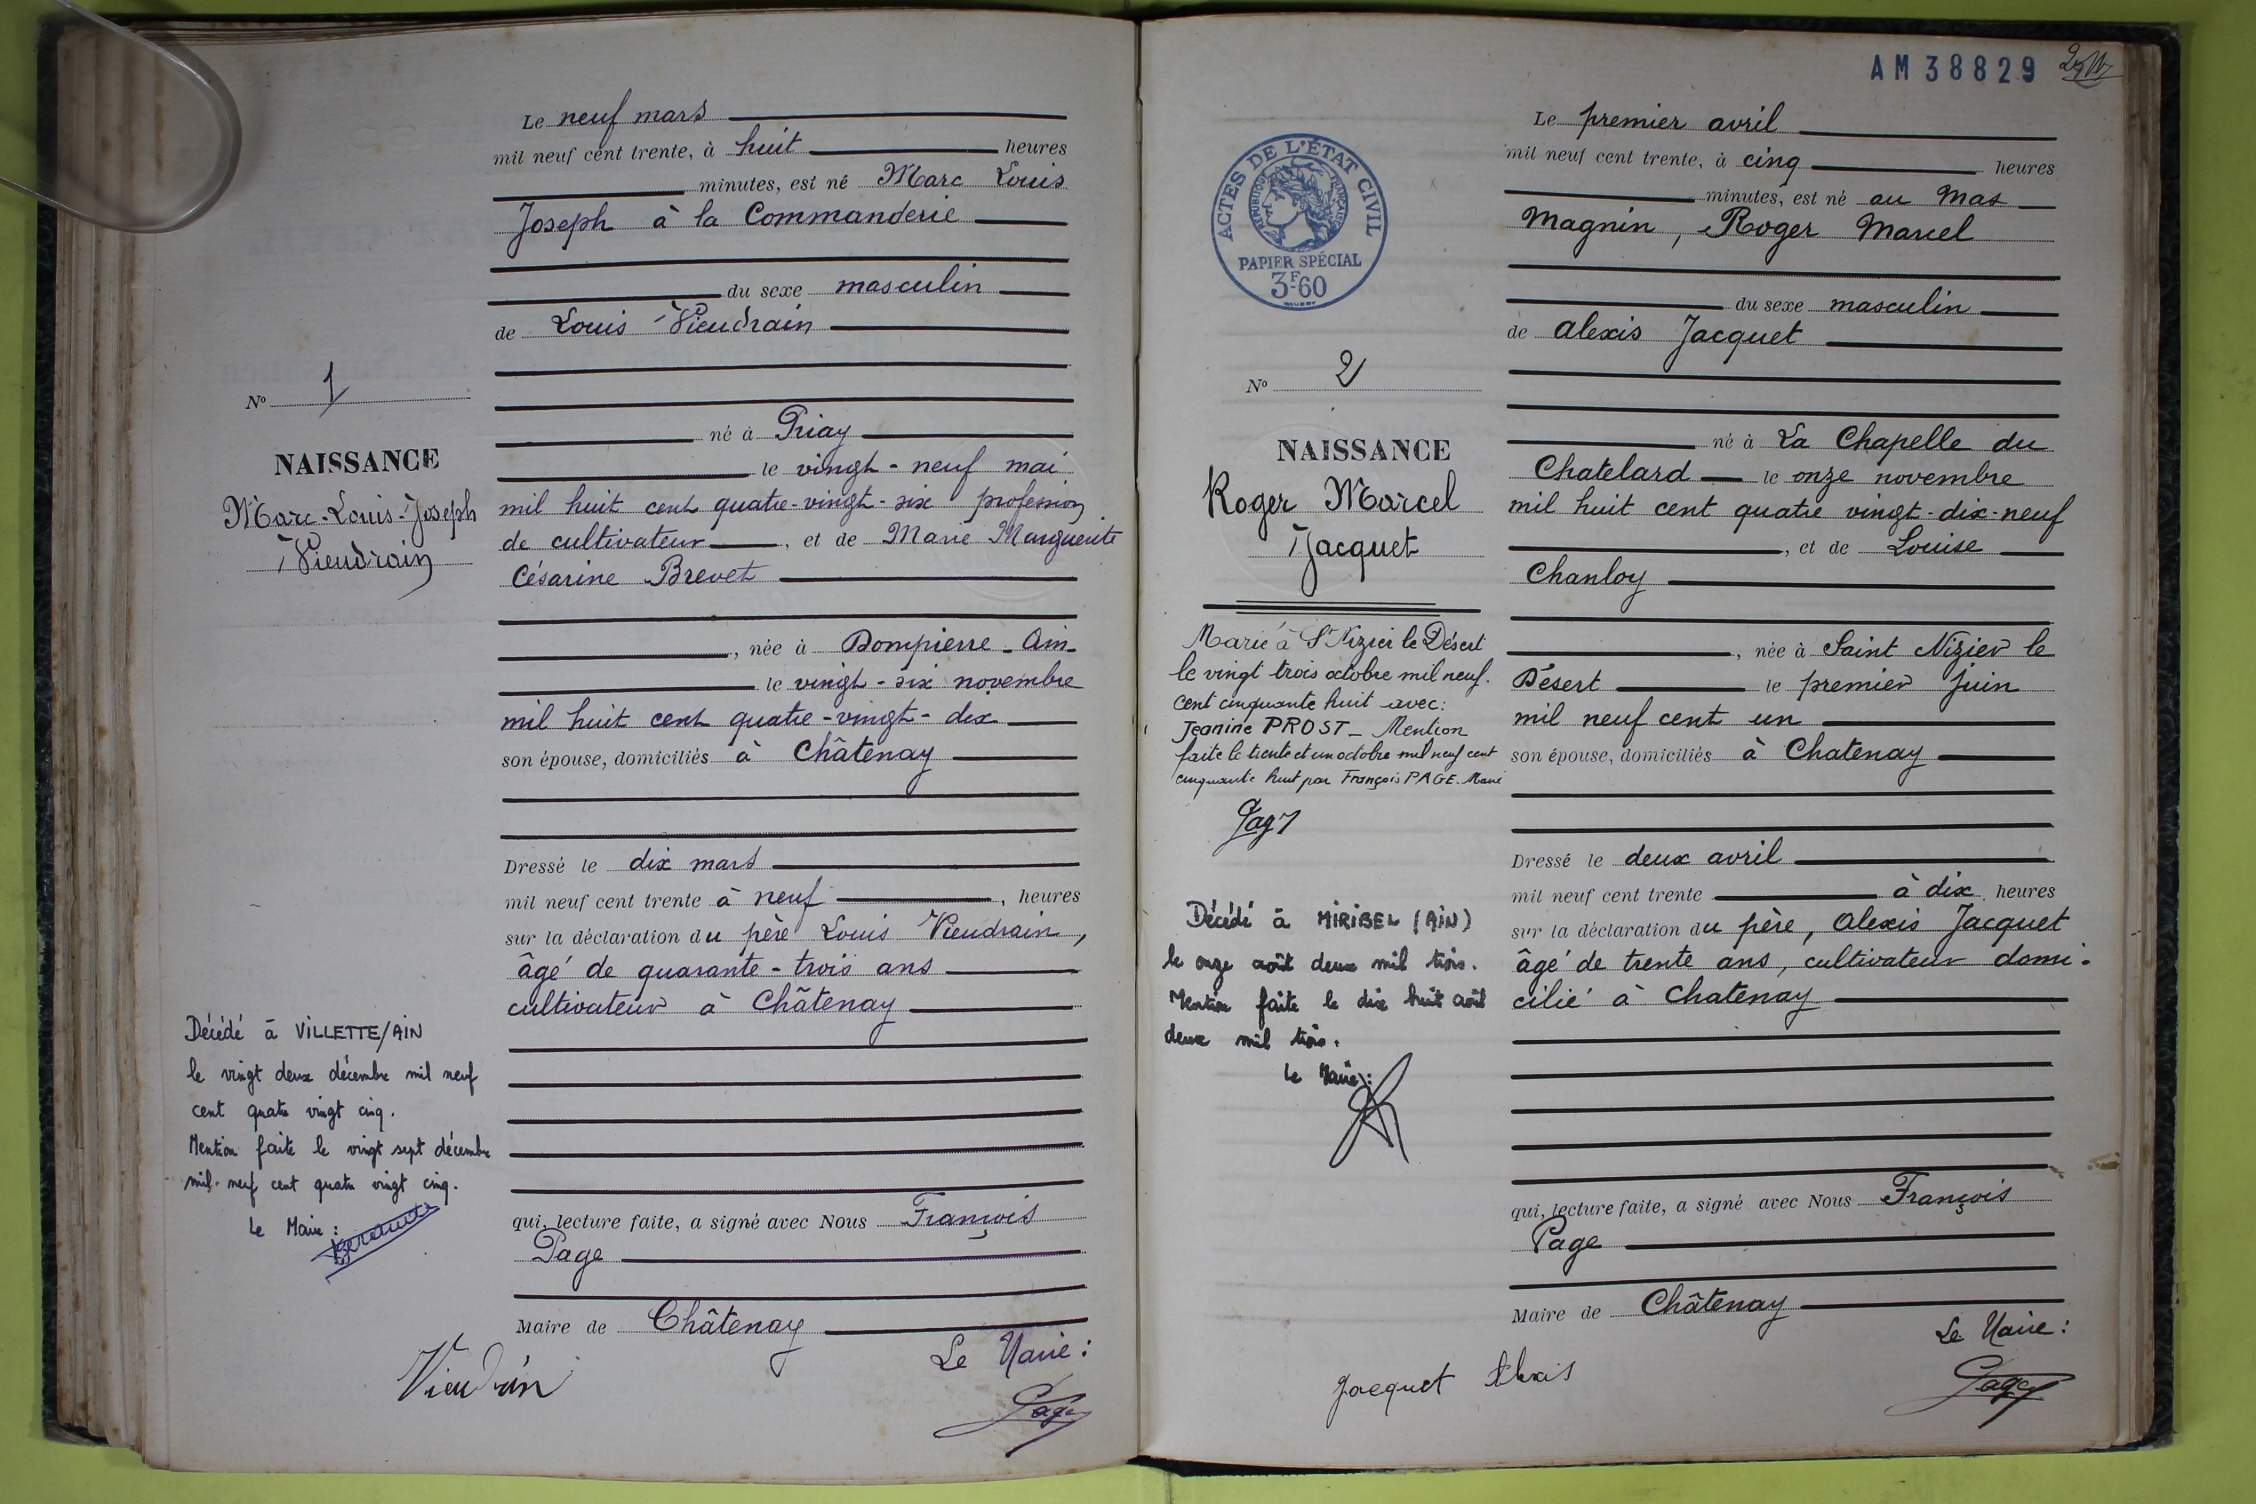 N° 1
NAISSANCE
Marc-Louis-Joseph
Vieudrain
Décédé à VILLETTE/AIN
le vingt deux décembre mil neuf
cent quatre vingt cinq.
Mention faite le vingt sept décembre
mil neuf cent quatre vingt cinq.
Le Maire :
Le neuf mars
mil neuf cent trente, à huit heures
minutes, est né Marc Louis
Joseph à la Commanderie
du sexe masculin
de Louis Vieudrain
né à Priay
le vingt-neuf mai
mil huit cent quatre-vingt-six profession
de cultivateur, et de Marie Marguerite
Césarine Brevet
, née à Dompierre-Ain-
le vingt-six novembre
mil huit cent quatre-vingt-dix
son épouse, domiciliés à Châtenay
Dressé le dix mars
mil neuf cent trente à neuf, heures
sur la déclaration du père Louis Vieudrain,
âgé de quarante-trois ans
cultivateur à Châtenay
qui, lecture faite, a signé avec Nous François
Page
Maire de Châtenay
Le Maire :
Vieudrain
Page
AM38829
ACTES DE L'ÉTAT CIVIL
RÉPUBLIQUE FRANÇAISE
PAPIER SPÉCIAL
3F60
N° 2
NAISSANCE
Roger Marcel
Jacquet
Marié à St Nizier le Désert
le vingt trois octobre mil neuf.
cent cinquante huit avec:
Jeanine PROST_ Mention
faite le trente et un octobre mil neuf cent
cinquante huit par François PAGE. Maire
Page
Décédé à MIRIBEL (AIN)
le onze août deux mil trois.
Mention faite le dix huit août
deux mil trois.
Le Maire :
Le premier avril
mil neuf cent trente, à cinq heures
minutes, est né au Mas
Magnin, Roger Marcel
du sexe masculin
de Alexis Jacquet
né à La Chapelle du
Chatelard le onze novembre
mil huit cent quatre vingt-dix-neuf
, et de Louise
Chanloy
, née à Saint Nizier le
Désert le premier juin
mil neuf cent un
son épouse, domiciliés à Chatenay
Dressé le deux avril
mil neuf cent trente à dix heures
sur la déclaration du père, Alexis Jacquet
âgé de trente ans, cultivateur domi-
cilié à Chatenay
qui, lecture faite, a signé avec Nous François
Page
Maire de Châtenay
Le Maire :
Jacquet Alexis
Page